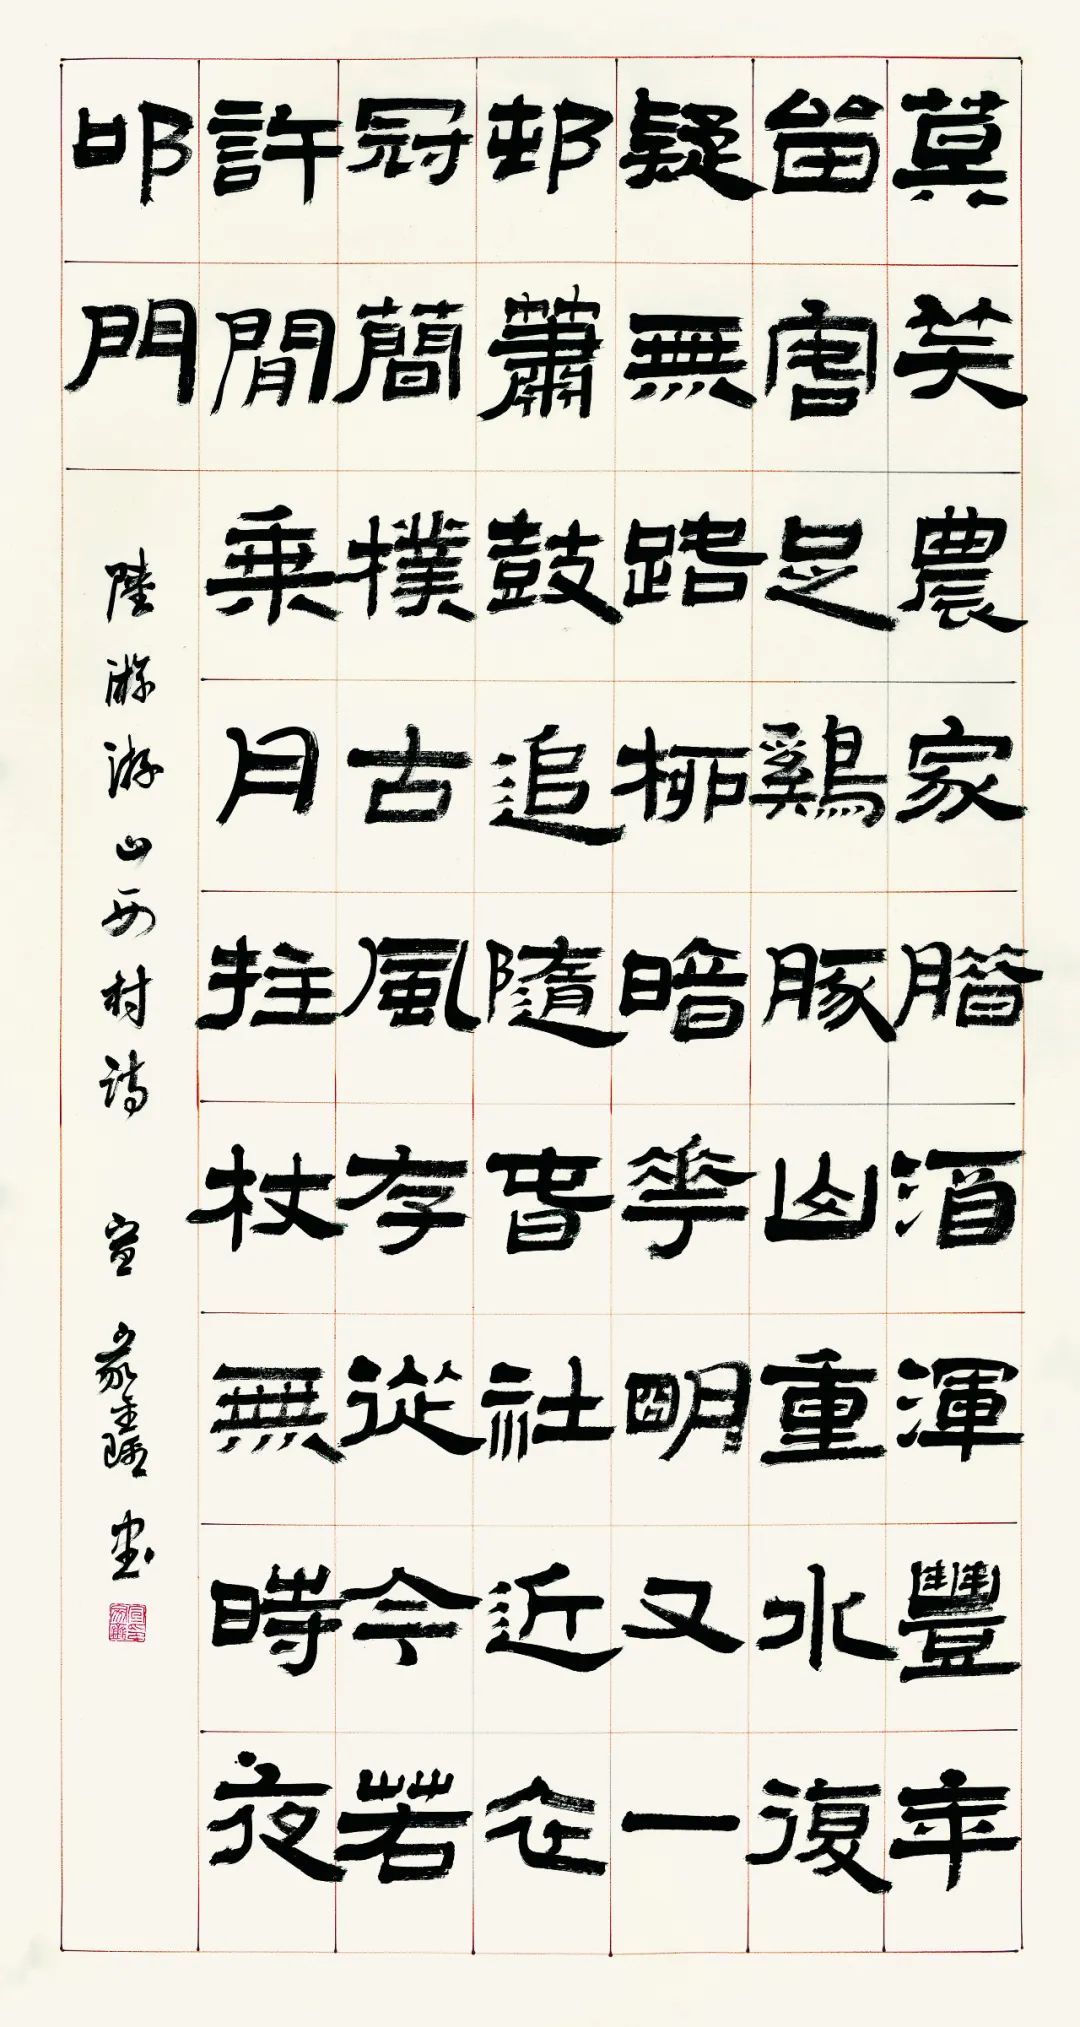 莫笑農家腊酒渾豐年
留客足鷄豚山重水復
疑無路柳暗花明又一
邨簫鼓追隨春社近衣
冠簡撲古風存從今若
許閒乘月拄杖無時夜
叩門
陸游游山西村詩 宣家鑫書